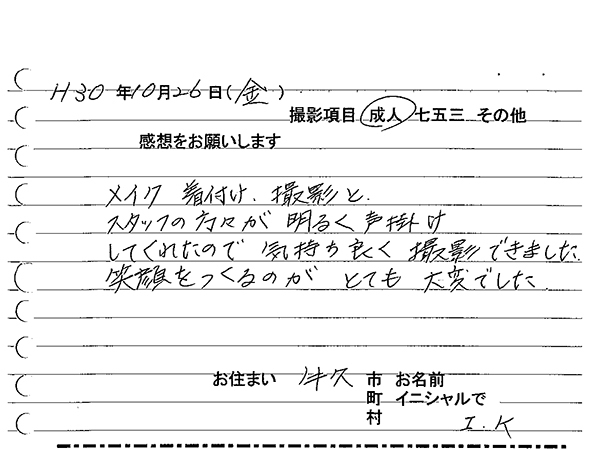 H30年10月26日(金)
撮影項目 成人 七五三 その他
感想をお願いします
メイク 着付け、撮影と、
スタッフの方々が 明るく 声掛け
してくれたので 気持ち良く 撮影できました。
笑顔をつくるのが とても 大変でした
お住まい 市 お名前
町 イニシャルで
村 I.K